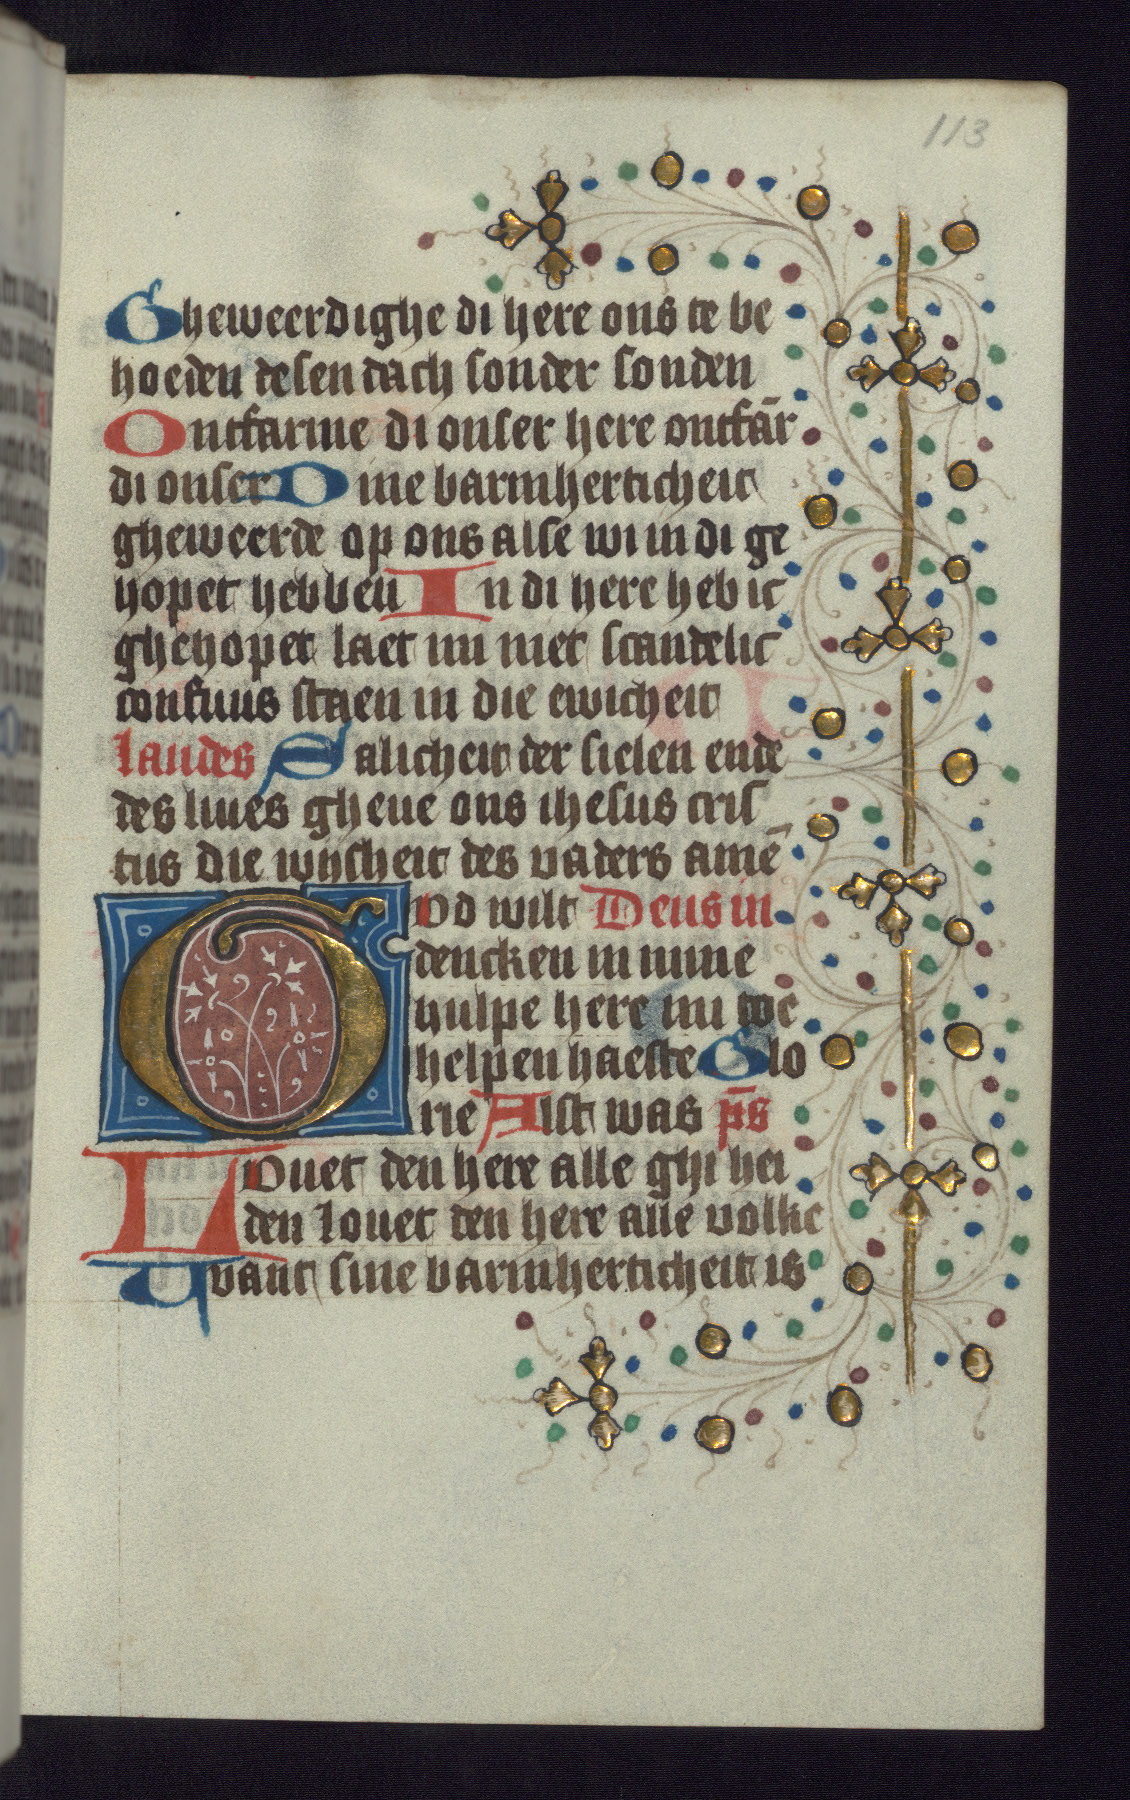 113
Gheweerdighe di here ons te be
hoeden desen dach sonder sonden
Ontfarme di onser here ontfār
di onser Dine barmherticheit
gheweerde op ons alse wi in di ge
hopet hebben In di here heb ic
ghehopet laet mi niet scandelic
confuus staen in die ewicheit
laudes Salicheit der sielen ende
des liues gheue ons ihesus cris
tus die wijsheit des vaders amē
God wilt Deus in
dencken in mine
hulpe here mi toe
helpen haeste Glo
rie Alst was p̄s
Louet den here alle ghi hei
den Louet den here alle volke
Want sine barmherticheit is